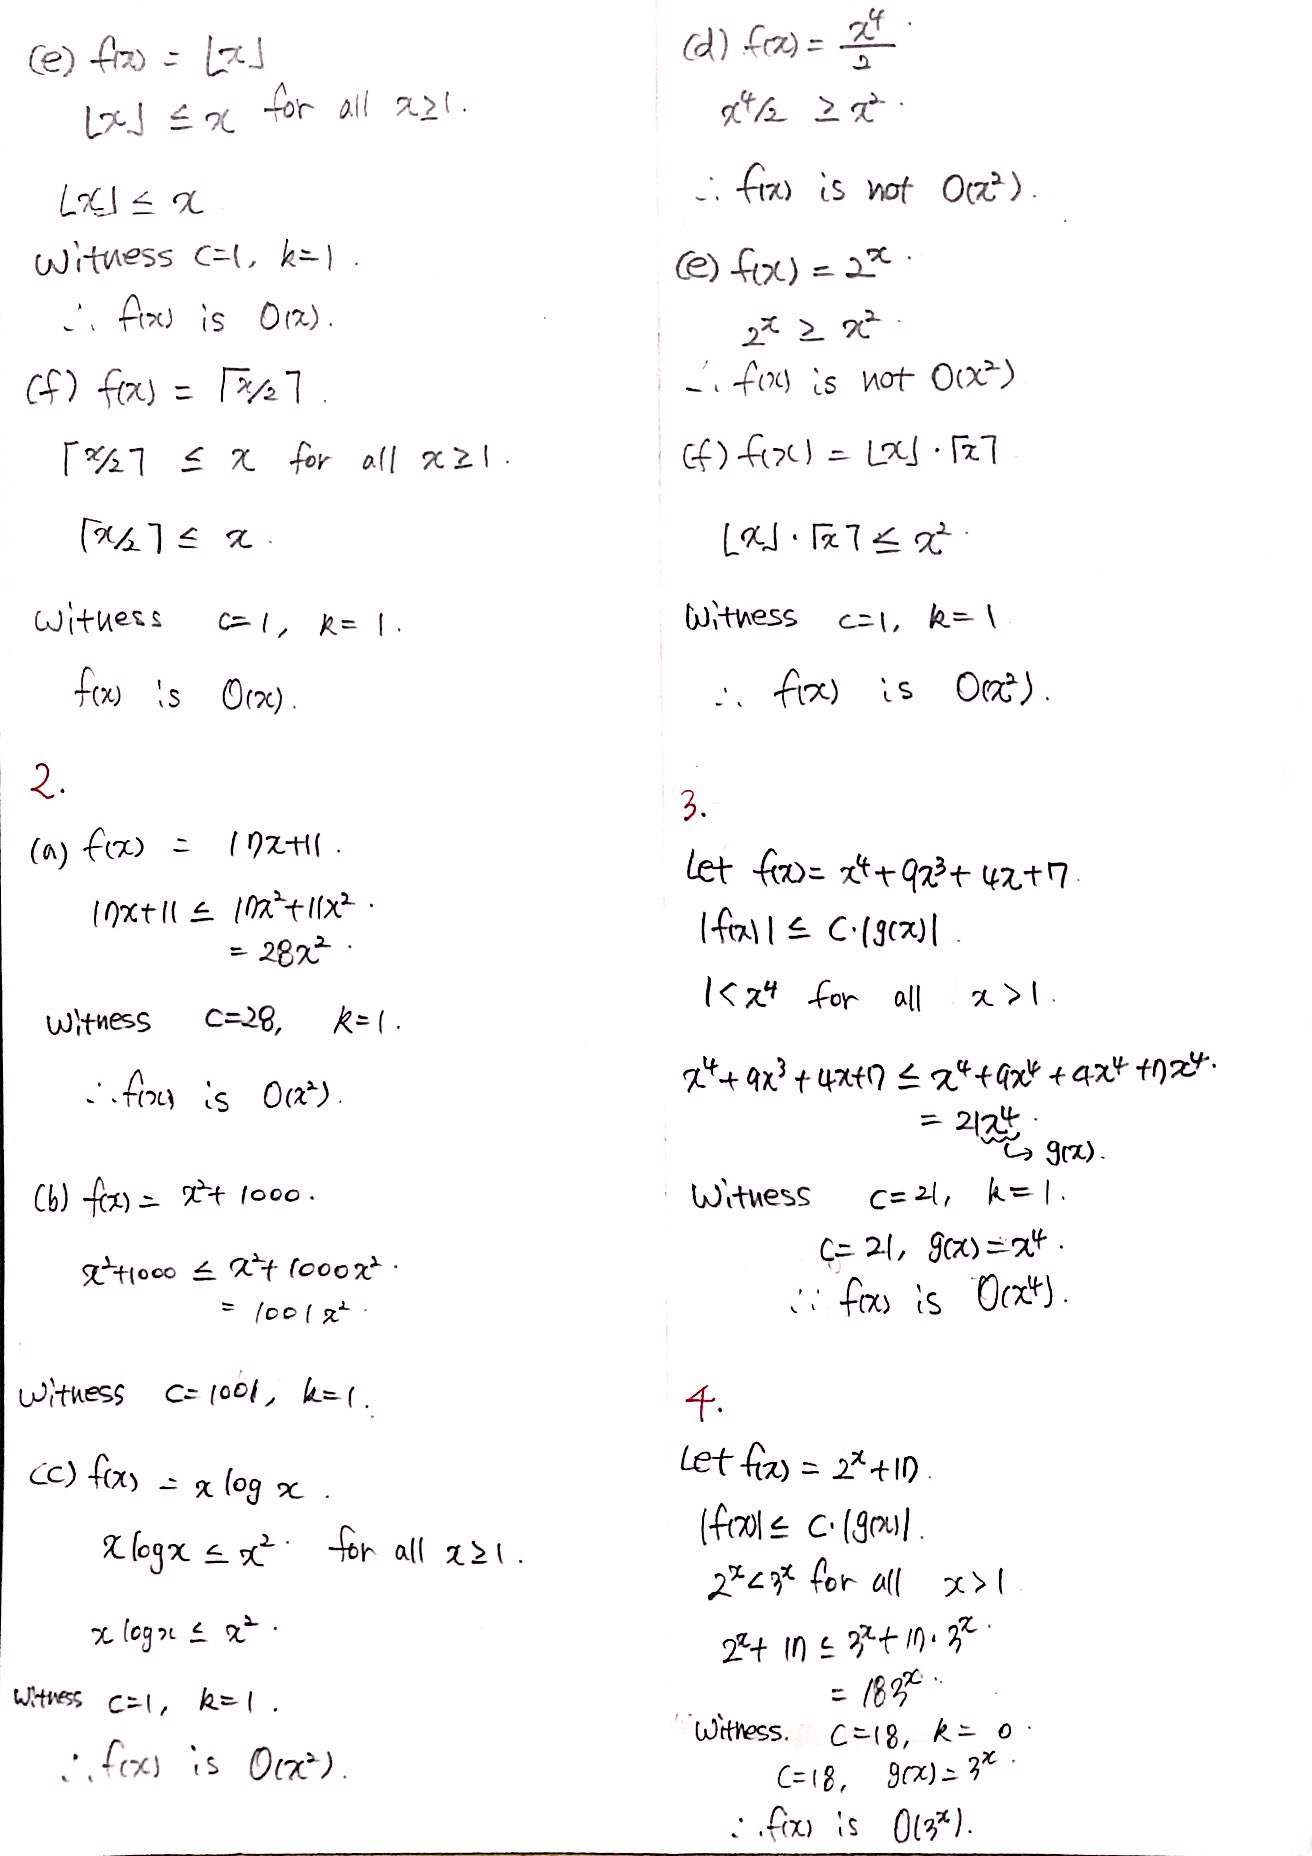 (e) f(x) = ⌊x⌋
⌊x⌋ ≤ x for all x≥1.
⌊x⌋ ≤ x
Witness C=1, k=1.
∴ f(x) is O(x).
(f) f(x) = ⌈x/2⌉.
⌈x/2⌉ ≤ x for all x≥1.
⌈x/2⌉ ≤ x.
Witness C=1, k=1.
f(x) is O(x).
2.
(a) f(x) = 17x+11.
17x+11 ≤ 17x²+11x².
= 28x².
Witness C=28, k=1.
∴ f(x) is O(x²).
(b) f(x) = x²+1000.
x²+1000 ≤ x²+1000x².
= 1001x².
Witness C=1001, k=1.
(c) f(x) = x log x.
x log x ≤ x². for all x≥1.
x log x ≤ x².
Witness C=1, k=1.
∴ f(x) is O(x²).
(d) f(x) = x⁴/2.
x⁴/2 ≥ x².
∴ f(x) is not O(x²).
(e) f(x) = 2ˣ.
2ˣ ≥ x².
∴ f(x) is not O(x²)
(f) f(x) = ⌊x⌋·⌈x⌉
⌊x⌋·⌈x⌉ ≤ x².
Witness C=1, k=1
∴ f(x) is O(x²).
3.
Let f(x) = x⁴+9x³+4x+7.
|f(x)| ≤ C·|g(x)|.
1<x⁴ for all x>1.
x⁴+9x³+4x+7 ≤ x⁴+9x⁴+4x⁴+7x⁴.
= 21x⁴.
↳ g(x).
Witness C=21, k=1.
C=21, g(x)=x⁴.
∴ f(x) is O(x⁴).
4.
Let f(x) = 2ˣ+17.
|f(x)| ≤ C·|g(x)|.
2ˣ<3ˣ for all x>1
2ˣ+17 ≤ 3ˣ+17·3ˣ.
= 183ˣ.
Witness. C=18, k=0.
C=18, g(x)=3ˣ.
∴ f(x) is O(3ˣ).